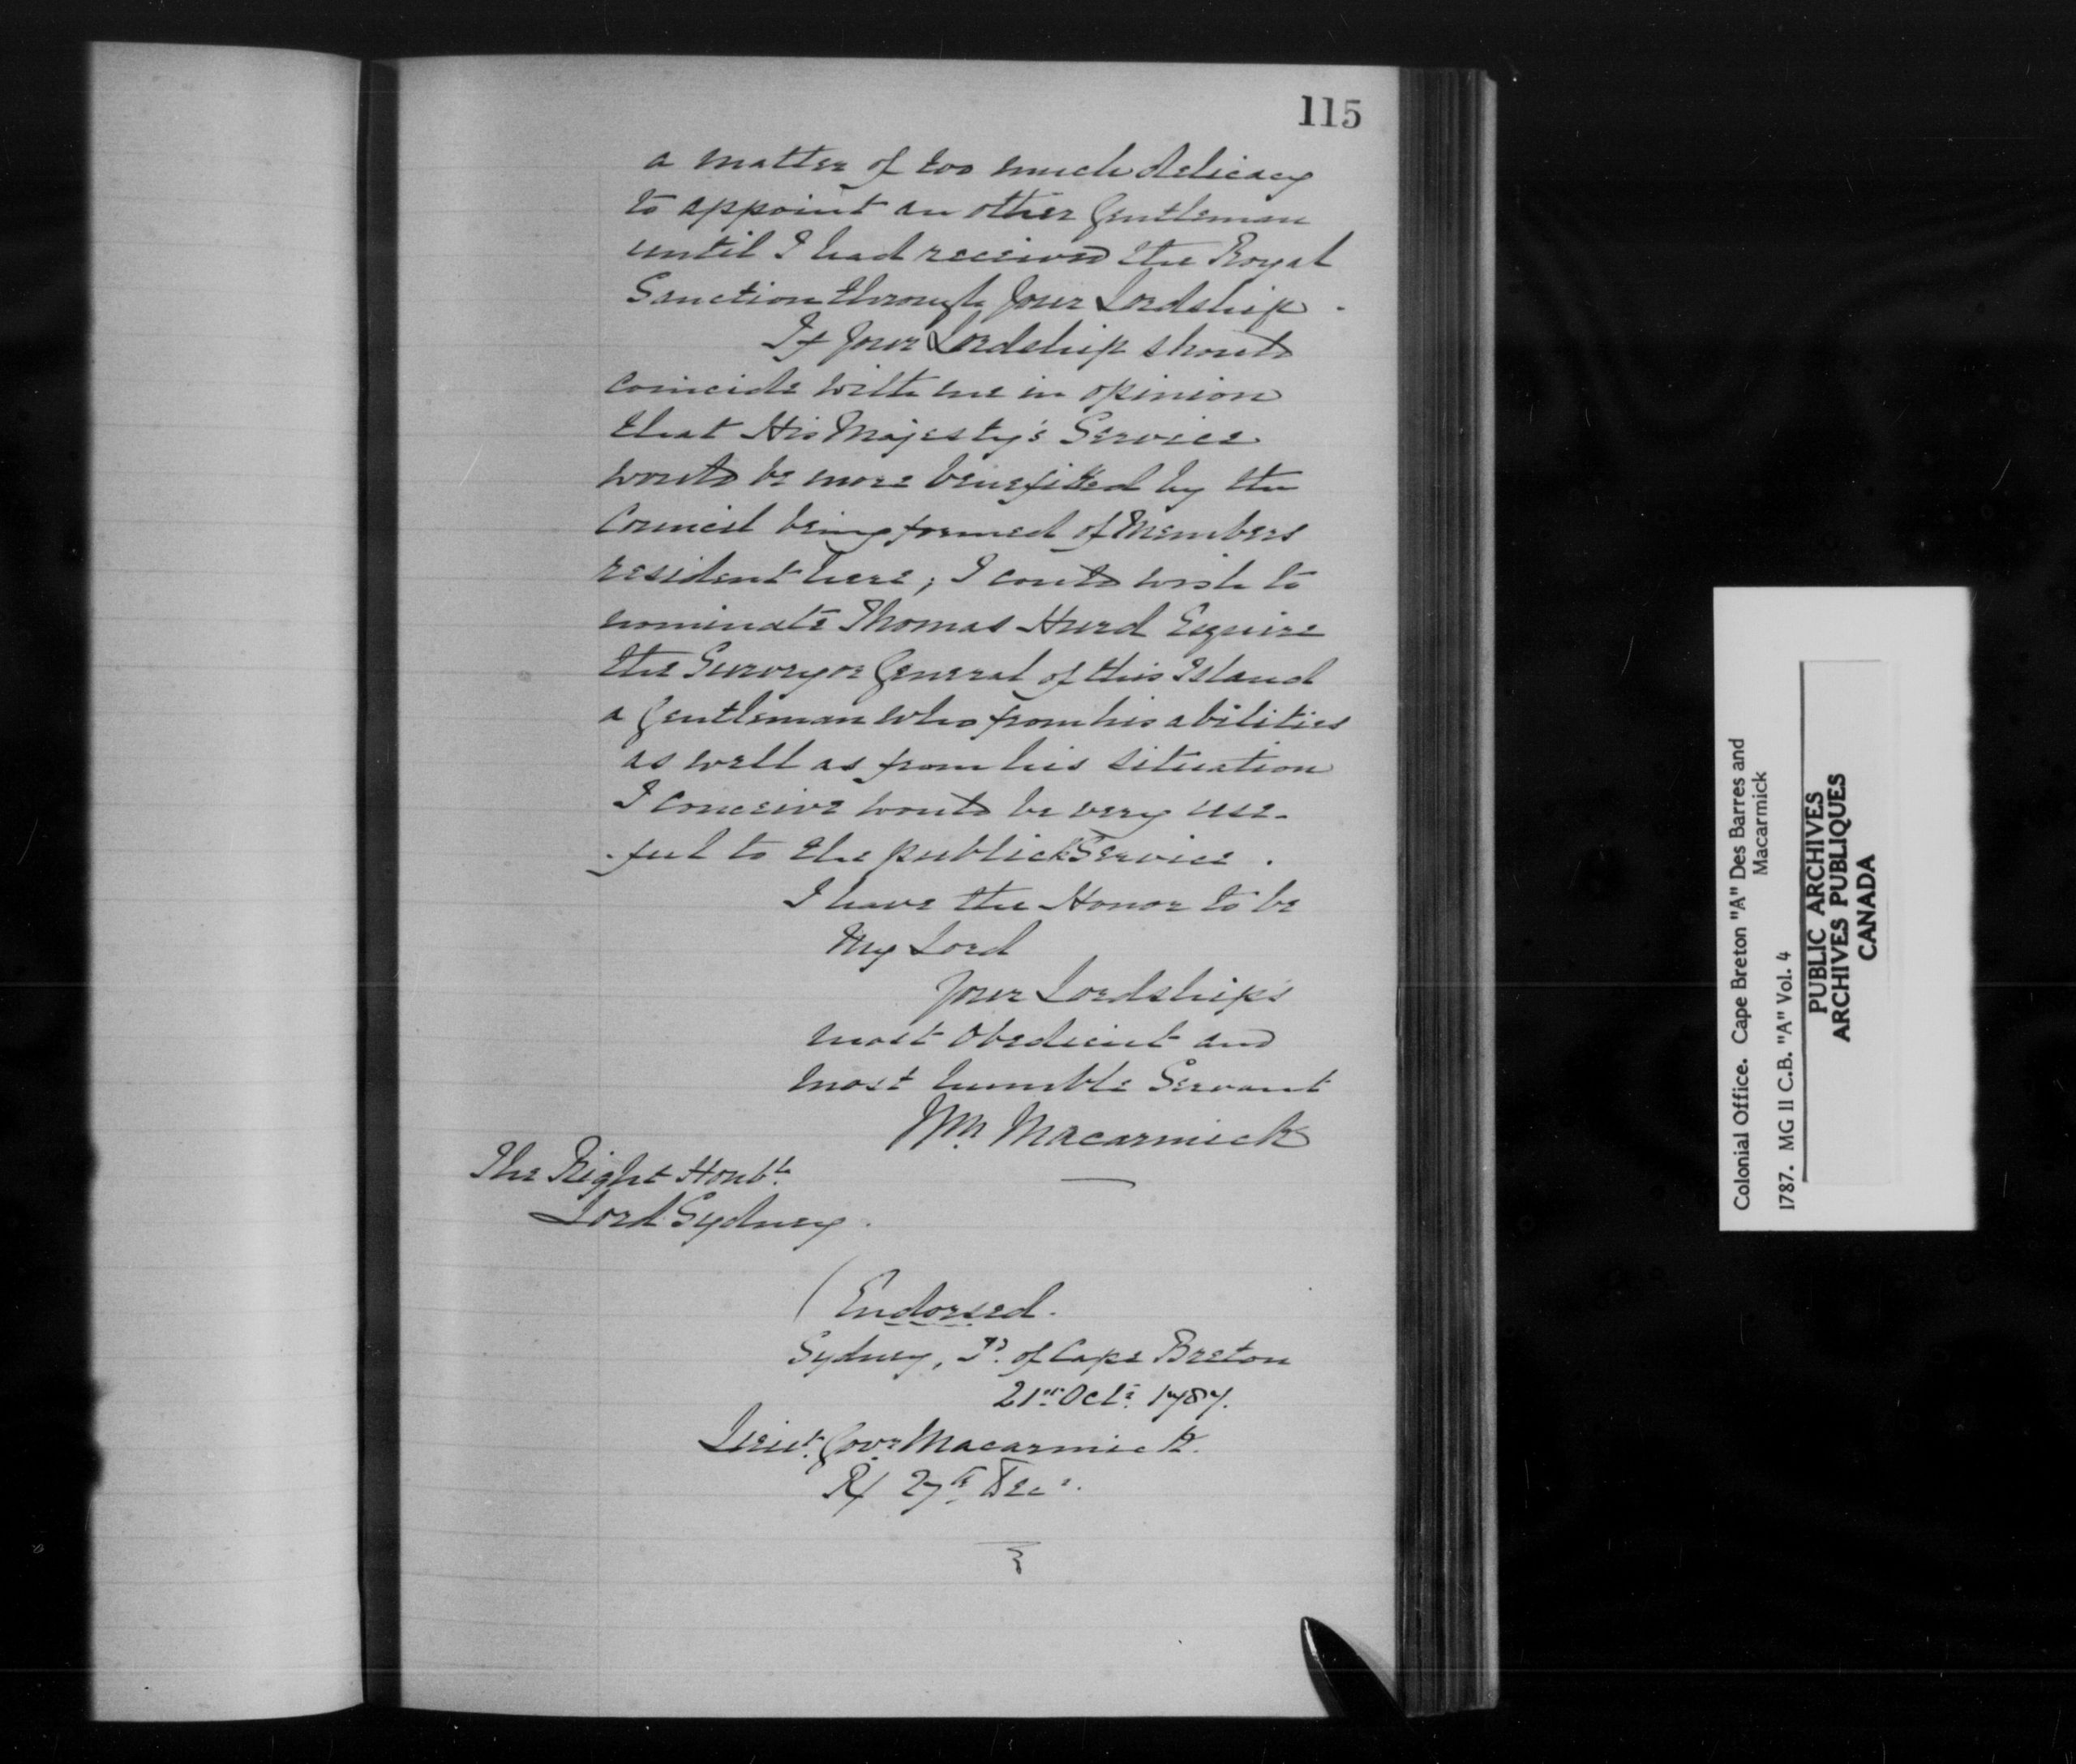 115
a matter of too much delicacy
to appoint an other Gentleman
until I had received the Royal
Sanction through Your Lordship.
If Your Lordship should
coincide with me in opinion
that His Majesty's Service
would be more benefitted by the
Council being formed of Members
resident here; I could wish to
nominate Thomas Hurd Esquire
the Surveyor General of this Island
a Gentleman who from his abilities
as well as from his situation
I conceive would be very use-
-ful to the publick Service.
I have the Honor to be
My Lord
Your Lordship's
most Obedient and
most humble Servant
Wm. Macarmick
The Right Honble.
Lord Sydney.
(Endorsed.
Sydney, Id. of Cape Breton
21st. Octr. 1787.
Lieut. Govr. Macarmick.
R/ 27th. Decr.
Colonial Office. Cape Breton "A" Des Barres and
Macarmick
1787. MG 11 C.B. "A" Vol. 4
PUBLIC ARCHIVES
ARCHIVES PUBLIQUES
CANADA